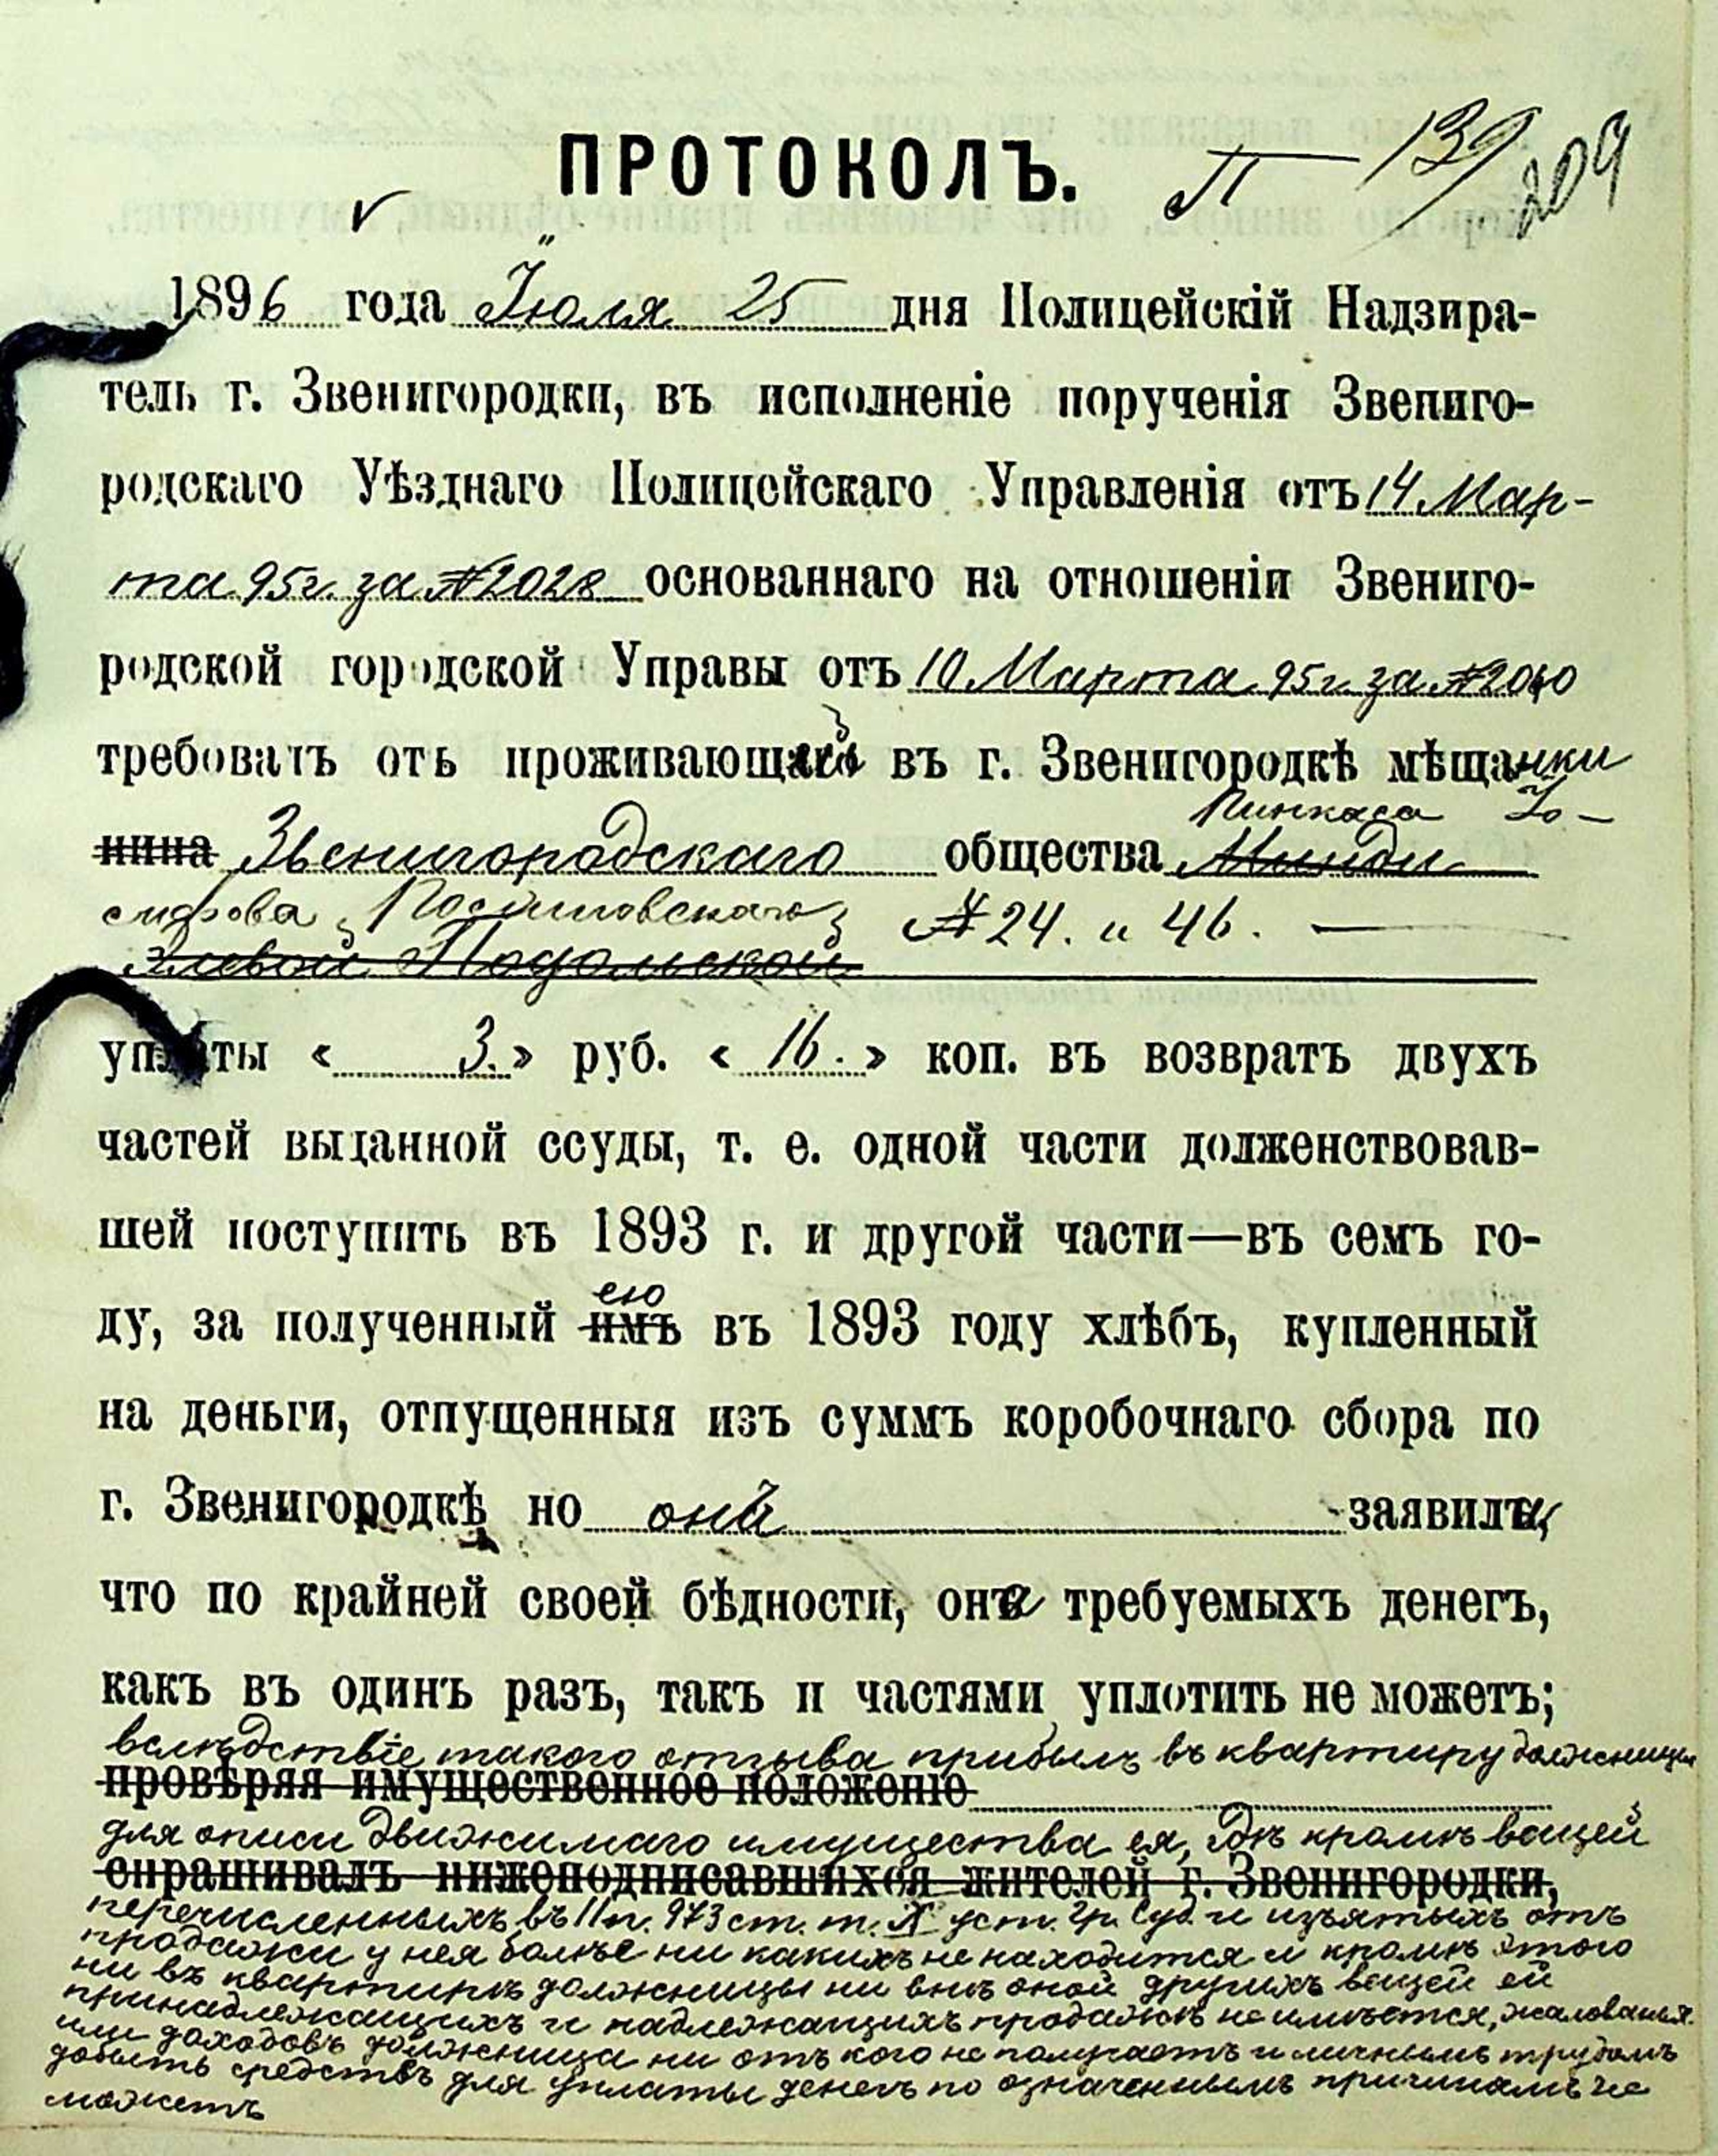 ПРОТОКОЛЪ. П — 139 209
1896 года Іюля 25 дня Полицейскій Надзира-
тель г. Звенигородки, въ исполненіе порученія Звениго-
родскаго Уѣзднаго Полицейскаго Управленія отъ 14 Мар-
та 95 г. за № 2028 основаннаго на отношеніи Звениго-
родской городской Управы отъ 10 Марта 95 г. за №
требовать отъ проживающ въ г. Звенигородкѣ мѣщанки
нина Звенигородскаго общества Минди Пинкаса Іо-
сифова № 24. и 46. —
Подольской
уплаты « 3. » руб. « 16. » коп. въ возвратъ двухъ
частей выданной ссуды, т. е. одной части долженствовав-
шей поступить въ 1893 г. и другой части—въ семъ го-
ду, за полученный имъ ею въ 1893 году хлѣбъ, купленный
на деньги, отпущенныя изъ суммъ коробочнаго сбора по
г. Звенигородкѣ но она заявила,
что по крайней своей бѣдности, она требуемыхъ денегъ,
какъ въ одинъ разъ, такъ и частями уплотить не можетъ;
вслѣдствіе такого отзыва прибылъ въ квартиру должницы
провѣряя имущественное положеніе
для описи движимаго имущества ея, гдѣ кромѣ вещей
спрашивалъ нижеподписавшихся жителей г. Звенигородки,
перечисленныхъ въ 11 п. 973 ст. т. X уст. Гр. Суд. и изъятыхъ отъ
продажи у нея болѣе ни какихъ не находится и кромѣ этого
ни въ квартирѣ должницы ни внѣ оной другихъ вещей ей
принадлежащихъ и надлежащихъ продажѣ не имѣется, жалованья
или доходовъ должница ни отъ кого не получаетъ и личнымъ трудомъ
добыть средствъ для уплаты денегъ по означеннымъ причинамъ не
можетъ